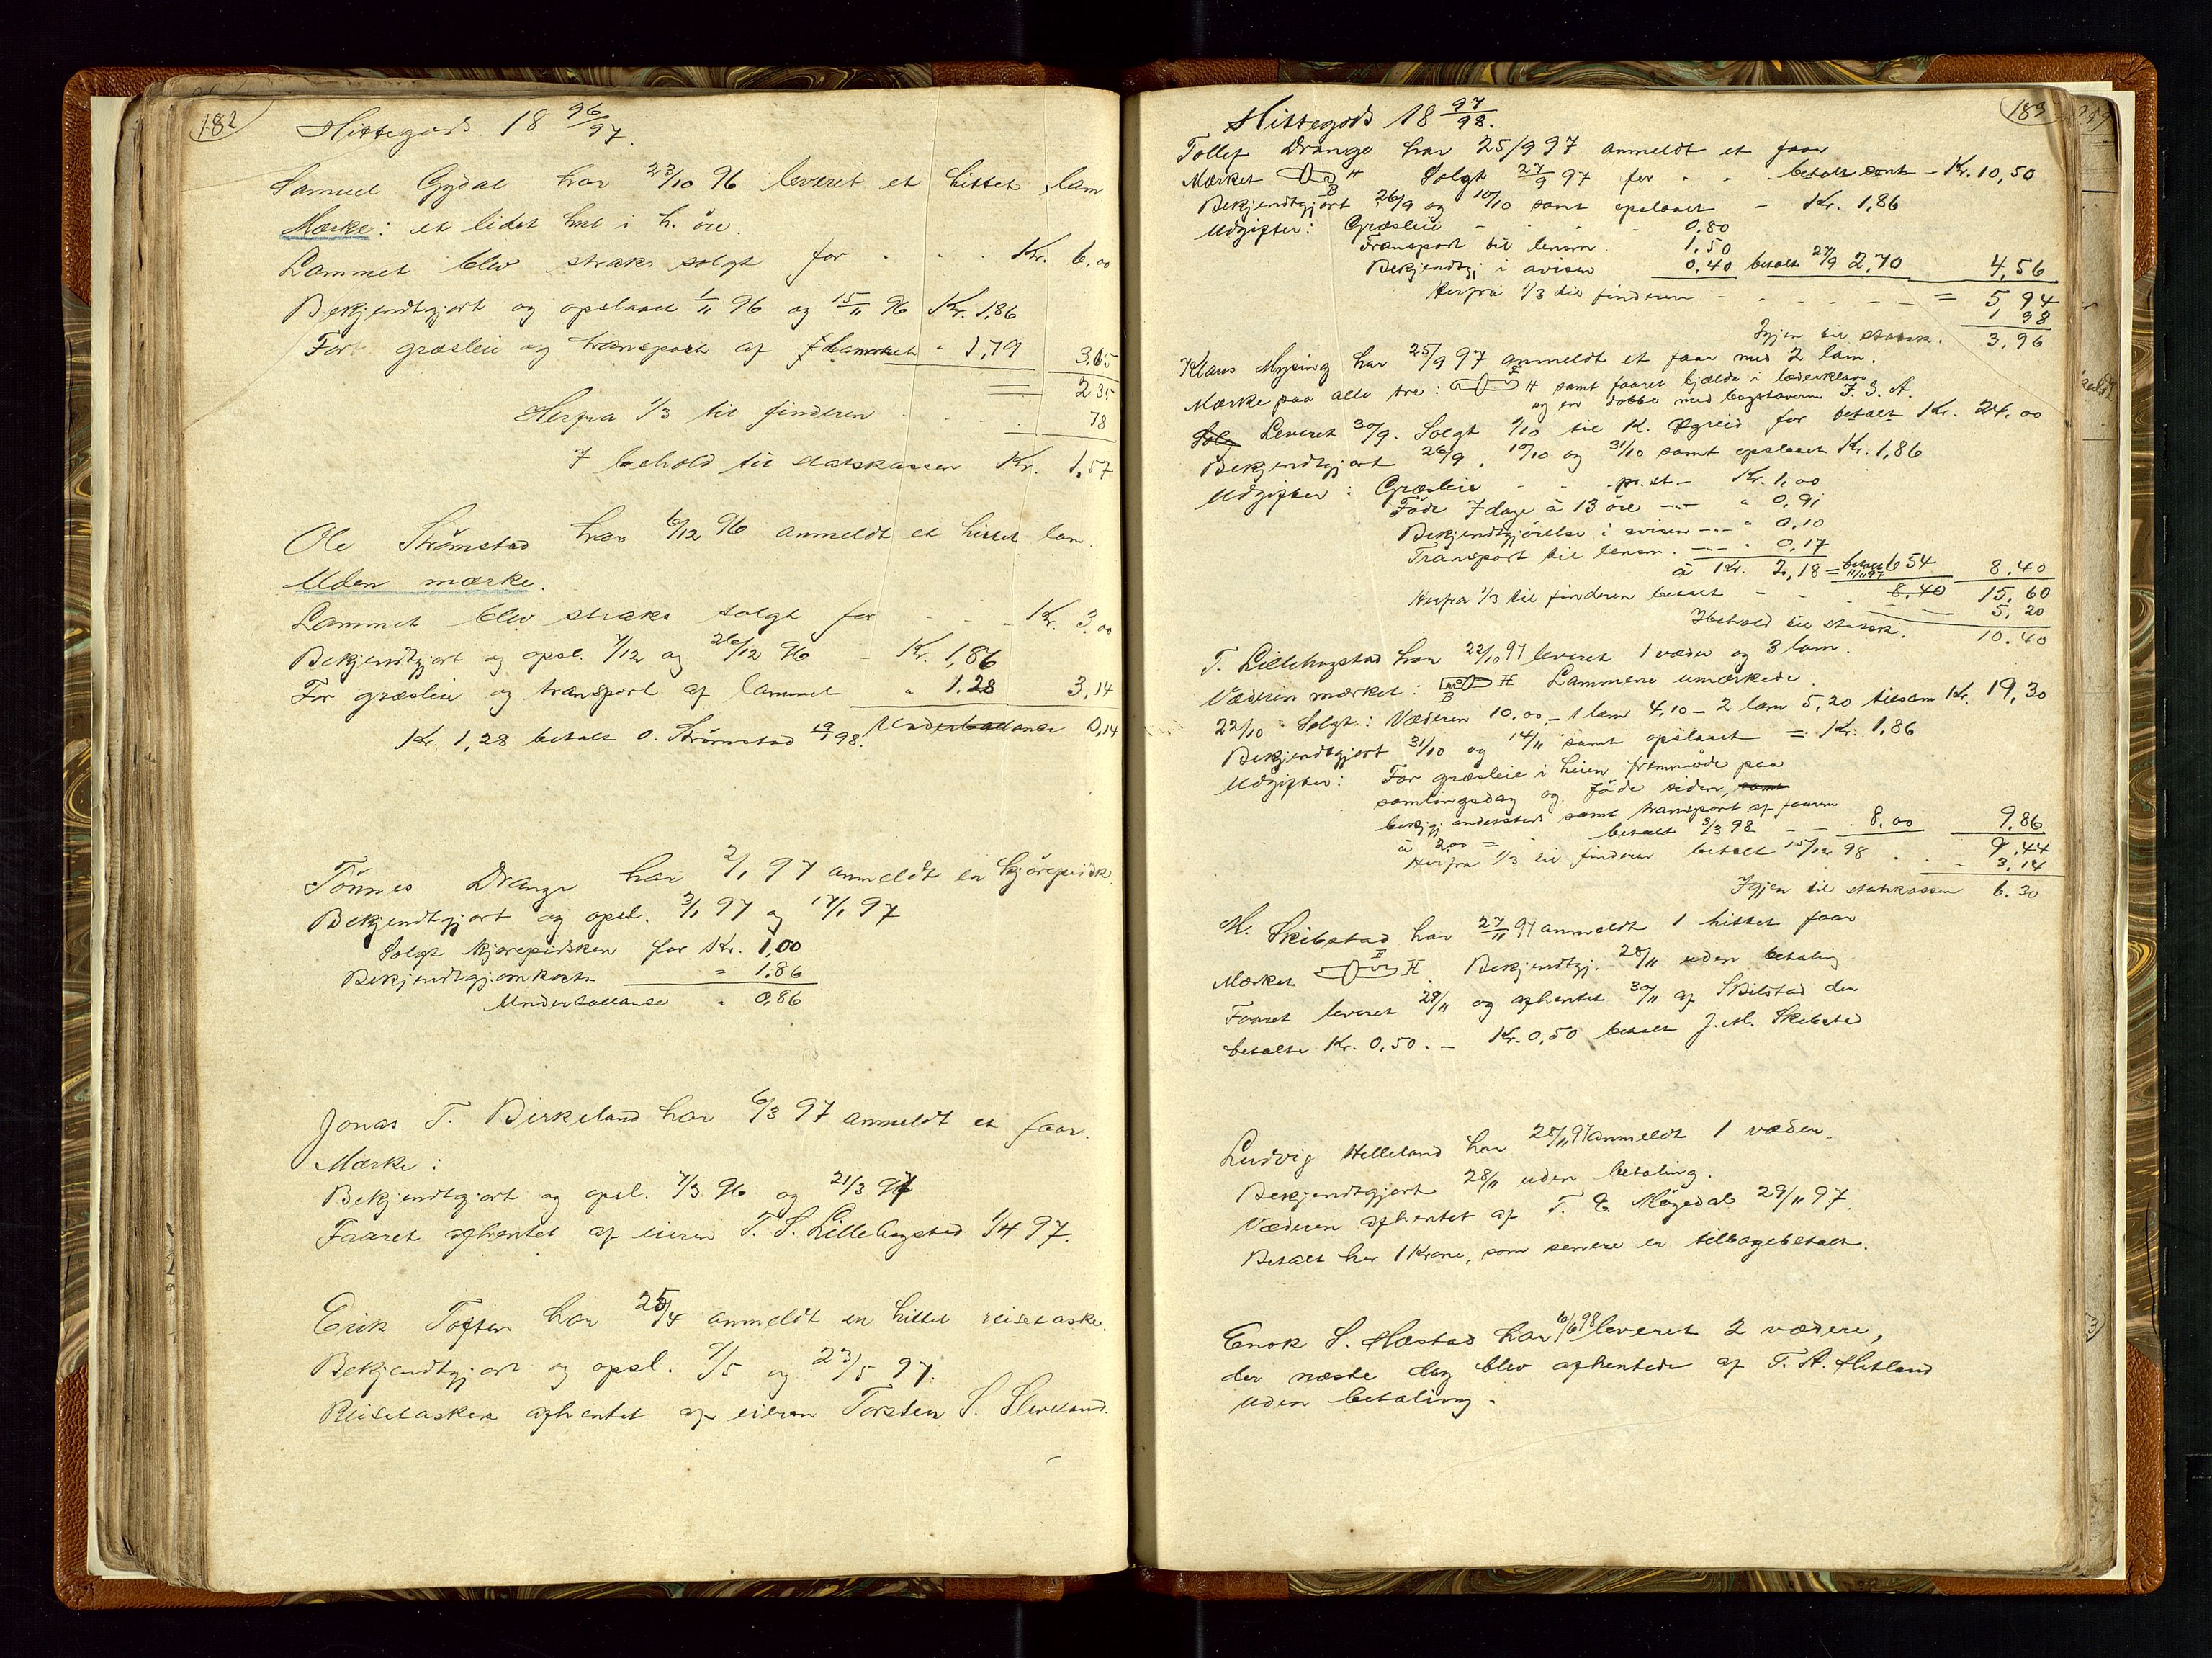 182
Hittegods 18 96/97.
Samuel Gydal har 23/10 96 leveret et hittet lam.
Mærke: et lidet hul i h. öre.
Lammet blev straks solgt for . . . Kr. 6,00
Bekjendtgjort og opslaaet 1/11 96 og 15/11 96 Kr. 1,86
For græsleie og transport af lammet " 1,79 3.65
= 2 35
Herfra 1/3 til finderen . . 78
I behold til statskassen Kr. 1,57
Ole Strömstad har 6/12 96 anmeldt et hittet lam.
Uden mærke.
Lammet blev straks solgt for - - - Kr. 3,00
Bekjendtgjort og opsl. 7/12 og 20/12 96 - Kr. 1,86
For græsleie og transport af lammet " 1.28 3,14
Kr. 1,28 betalt O. Strömstad 19/1 98. Underballance 0,14
Tönnes Drange har 2/1 97 anmeldt en kjörepidsk.
Bekjendtgjort og opsl. 3/1 97 og 17/1 97
Solgt kjörepidsken for Kr. 1,00
Bekjendtgj.omkostn " 1.86
Underballance " 0,86
Jonas T. Birkeland har 6/3 97 anmeldt et faar.
Mærke:
Bekjendtgjort og opsl. 7/3 96 og 21/3 97
Faaret afhentet af eieren T. S. Lillehogstad 1/4 97.
Erik Toften har 25/4 anmeldt en hittet reisetaske.
Bekjendtgjort og opsl. 9/5 og 23/5 97.
Reisetasken afhentet af eieren Torsten S. Sleveland.
183
Hittegods 18 97/98.
Tollef Drange har 25/9 97 anmeldt et faar
Mærket H B Solgt 27/9 97 for - - - betalt kont - Kr. 10,50
Bekjendtgjort 26/9 og 10/10 samt opslaaet - Kr. 1,86
Udgifter: Græsleie - - - 0,80
Transport til lensm. 1,50
Bekjendtgj. i avisen 0,40 betalt 27/9 2,70 4,56
Herfra 1/3 til finderen - - - - - = 5 94
1 98
Igjen til statsk. 3,96
Klaus Mysing har 25/9 97 anmeldt et faar med 2 lam.
Mærke paa alle tre: F H samt faaret bjælde i læderklave
og en dobbe med bogstaverne J. S. A.
Solg Leveret 30/9. Solgt 1/10 til K. Øgreid for betalt Kr. 24,00
Bekjendtgjort 26/9, 10/10 og 31/10 samt opslaaet Kr. 1,86
Udgifter: Græsleie - - - pr. st. - Kr. 1,00
Föde 7 dage à 13 öre - - - " 0,91
Bekjendtgjörelse i avisen - - - " 0,10
Transport til lensm. - - - " 0,17
à Kr. 2,18 = betalt 11/11 97 6 54 8,40
Herfra 1/3 til finderen betalt - - - 8,40 15,60
5,20
I behold til statsk. 10.40
T. Lillehogstad har 22/10 97 leveret 1 væder og 3 lam.
Væderen mærket: B H Lammene umærkede.
22/10 Solgt: Væderen 10,00 - 1 lam 4,10 - 2 lam 5,20 tilsam Kr. 19,30
Bekjendtgjort 31/10 og 14/11 samt opslaaet = Kr. 1,86
Udgifter: For græsleie i heien fremmöde paa
samlingsdag og föde siden, samt
bekjgj. andetsteds samt transport af faarene
à 2,00 = betalt 3/3 98 - - 8,00 9,86
Herfra 1/3 til finderen betalt 15/12 98 . . 9,44
3,14
Igjen til statskassen 6.30
M. Skibstad har 27/11 97 anmeldt 1 hittet faar
Mærket F H. Bekjendtgj. 28/11 uden betaling
Faaret leveret 29/11 og afhentet 30/11 af Skibstad der
betalte Kr. 0,50. - Kr. 0,50 betalt J. M. Skibstad
Ludvig Helleland har 25/11 97 anmeldt 1 væder.
Bekjendtgjort 28/11 uden betaling.
Væderen afhentet af T. E Mögedal 29/11 97.
Betalt her 1 Krone, som senere er tilbagebetalt.
Enok S. Hæstad har 6/6 98 leveret 2 vædere,
der næste dag blev afhentede af T. A. Hetland
uden betaling.